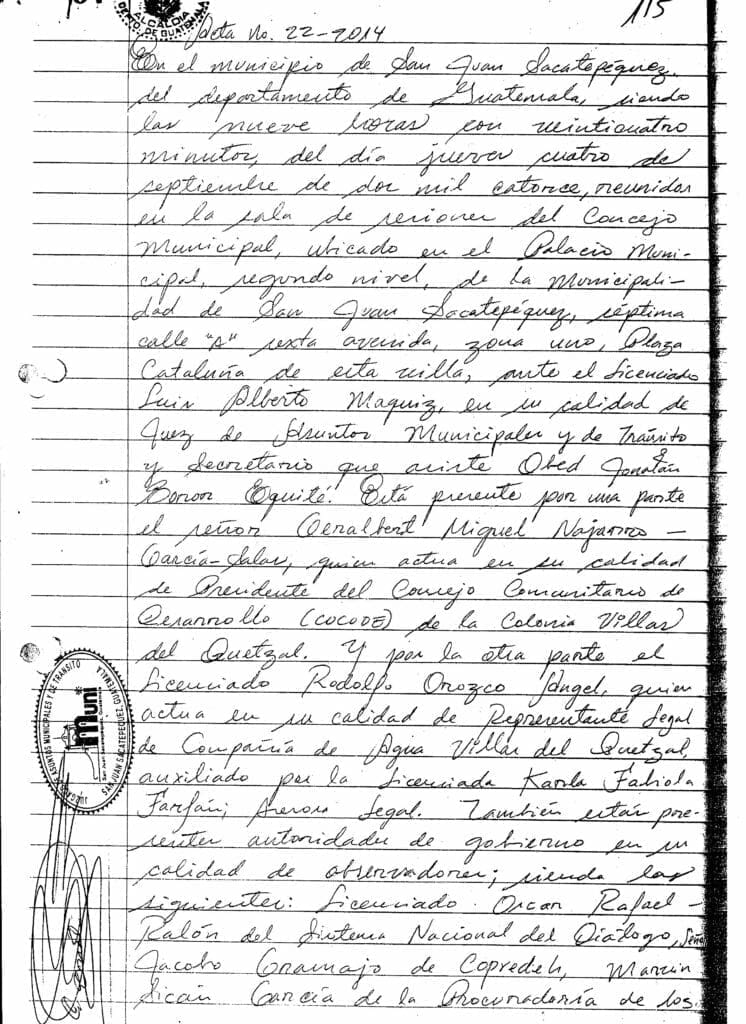 ALCALDIA
DEPTO. DE GUATEMALA
115
Acta No. 22-2014
En el municipio de San Juan Sacatepéquez,
del departamento de Guatemala, siendo
las nueve horas con veinticuatro
minutos, del día jueves cuatro de
septiembre de dos mil catorce, reunidos
en la sala de sesiones del Concejo
Municipal, ubicado en el Palacio Muni-
cipal, segundo nivel, de la Municipali-
dad de San Juan Sacatepéquez, séptima
calle "A" sexta avenida, zona uno, Plaza
Cataluña de esta villa, ante el Licenciado
Luis Alberto Maquiz, en su calidad de
Juez de Asuntos Municipales y de Tránsito
y Secretario que asiste Obed Jonatán
Boror Equité. Está presente por una parte
el señor Geralbert Miguel Najarro -
García-Salas, quien actua en su calidad
de Presidente del Concejo Comunitario de
Desarrollo (COCODE) de la Colonia Villas
del Quetzal. Y por la otra parte el
Licenciado Rodolfo Orozco Angel, quien
actua en su calidad de Representante Legal
de Compañía de Agua Villas del Quetzal,
auxiliado por la Licenciada Karla Fabiola
Farfán; Asesora Legal. También están pre-
sentes autoridades de gobierno en su
calidad de observadores; siendo las
siguientes: Licenciado Oscar Rafael -
Ralón del Sistema Nacional del Diálogo, Señor
Jacobo Gramajo de Copredeh, Marvin
Sicán García de la Procuradoría de los
JUZGADO ASUNTOS MUNICIPALES Y DE TRÁNSITO
muni
SAN JUAN SACATEPEQUEZ, GUATEMALA